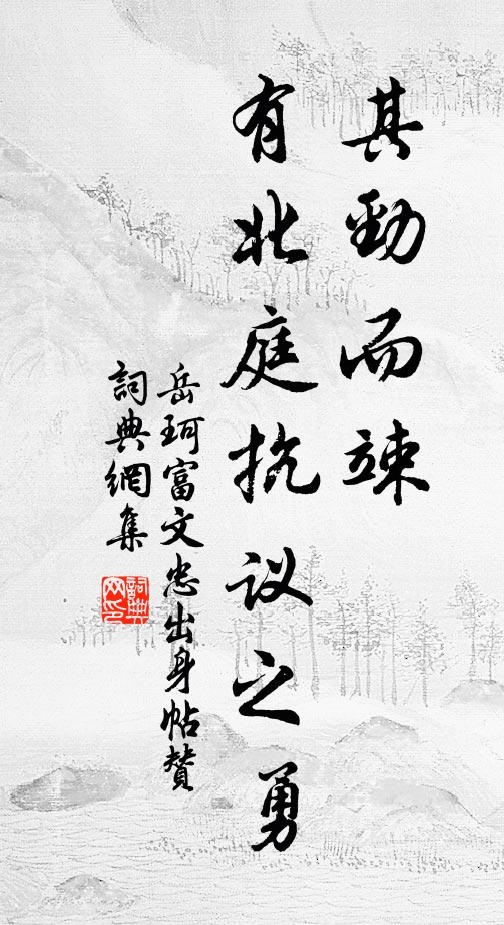 其勁而竦
有北庭抗议之勇
岳珂富文忠出身帖贊
詞典網集
詞典
网印